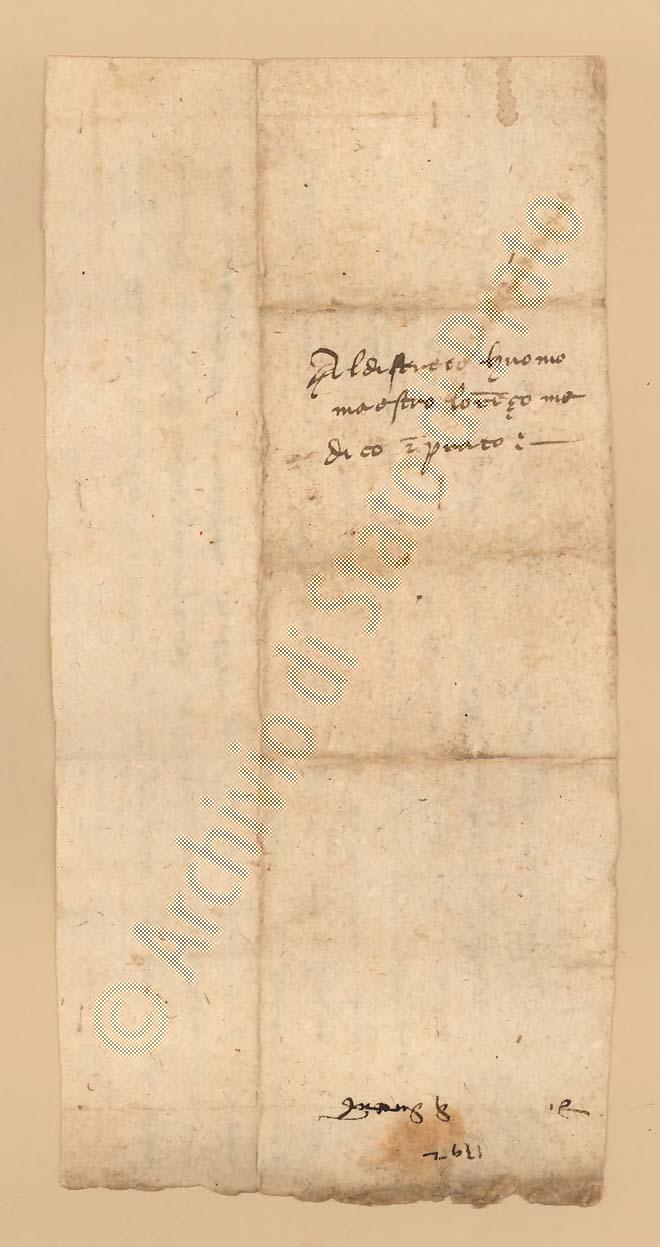 Al disсreto huomo
maestro lorẽço me
dico ĩ prato
© Archivio di Stato di Prato